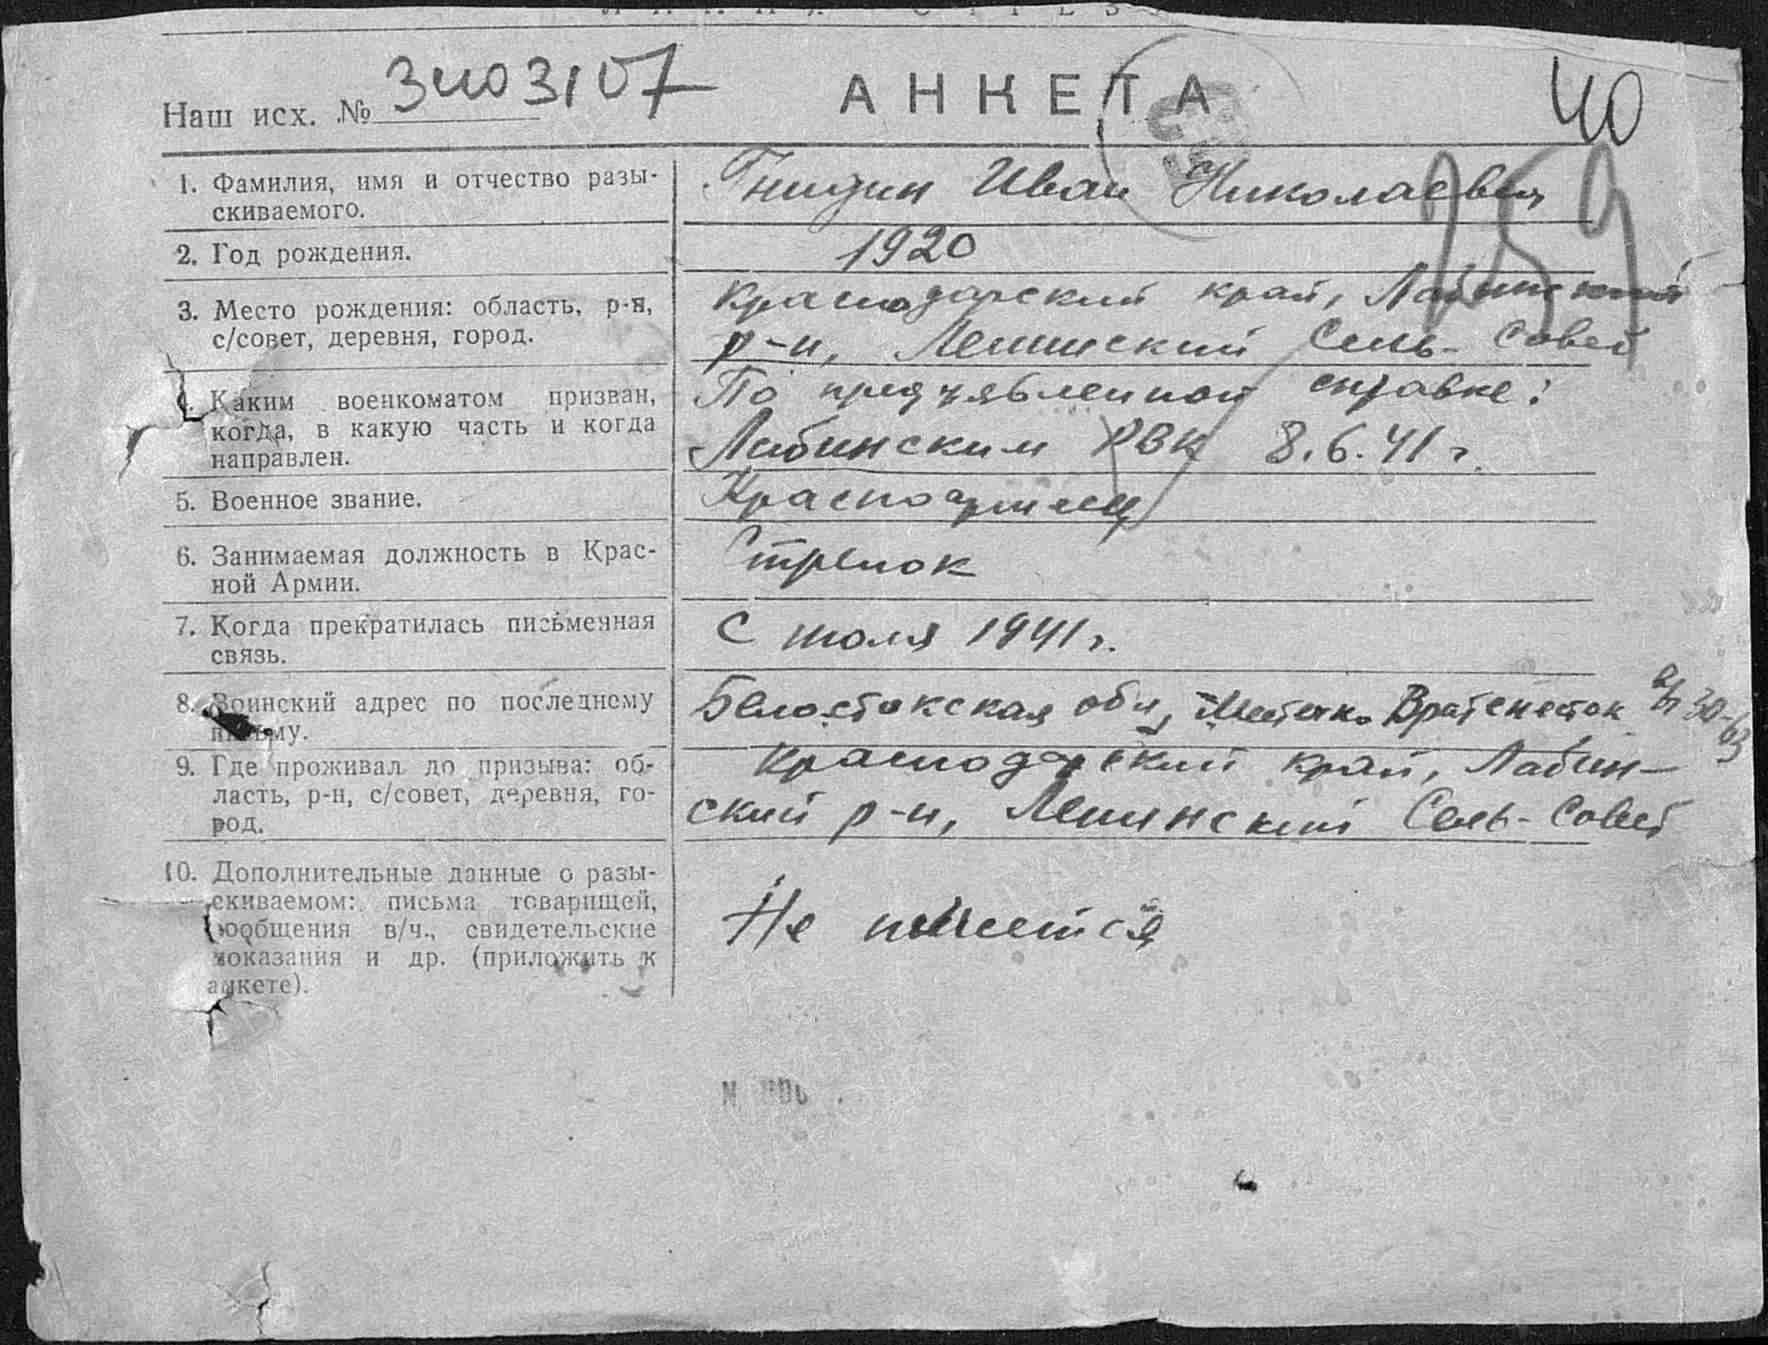 АНКЕТА
Наш исх. №
40
159
1. Фамилия, имя и отчество разы-
скиваемого.
Гнидин Иван Николаевич
2. Год рождения.
1920
3. Место рождения: область, р-н,
с/совет, деревня, город.
Краснодарский край, Лабинский
р-н, Ленинский Сель-Совет
4. Каким военкоматом призван,
когда, в какую часть и когда
направлен.
По предъявленной справке:
Лабинским РВК 8.6.41 г.
5. Военное звание.
Красноармеец
6. Занимаемая должность в Крас-
ной Армии.
Стрелок
7. Когда прекратилась письменная
связь.
С июля 1941 г.
8. Воинский адрес по последнему
письму.
Белостокская обл, Местечко
9. Где проживал до призыва: об-
ласть, р-н, с/совет, деревня, го-
род.
Краснодарский край, Лабин-
ский р-н, Ленинский Сель-Совет
10. Дополнительные данные о разы-
скиваемом: письма товарищей,
сообщения в/ч., свидетельские
показания и др. (приложить к
анкете).
Не имеется